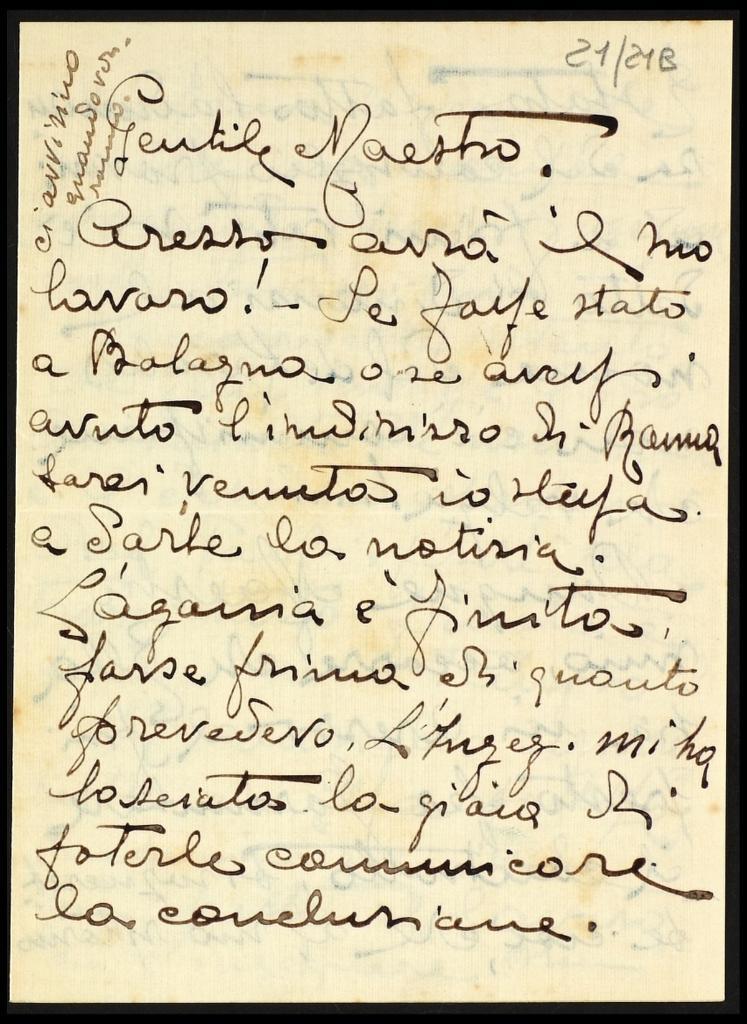 21/21B
ci avvisino
quando ver-
ranno.
Gentile Maestro.
Arezzo avrà il suo
lavoro! - Se fosse stato
a Bologna o se avessi
avuto l'indirizzo di Roma
sarei venuta io stessa
a darle la notizia.
L'agonia è finita,
forse prima di quanto
prevedevo. L'Ingeg. mi ha
lasciata la gioia di
poterle communicare
la conclusione.